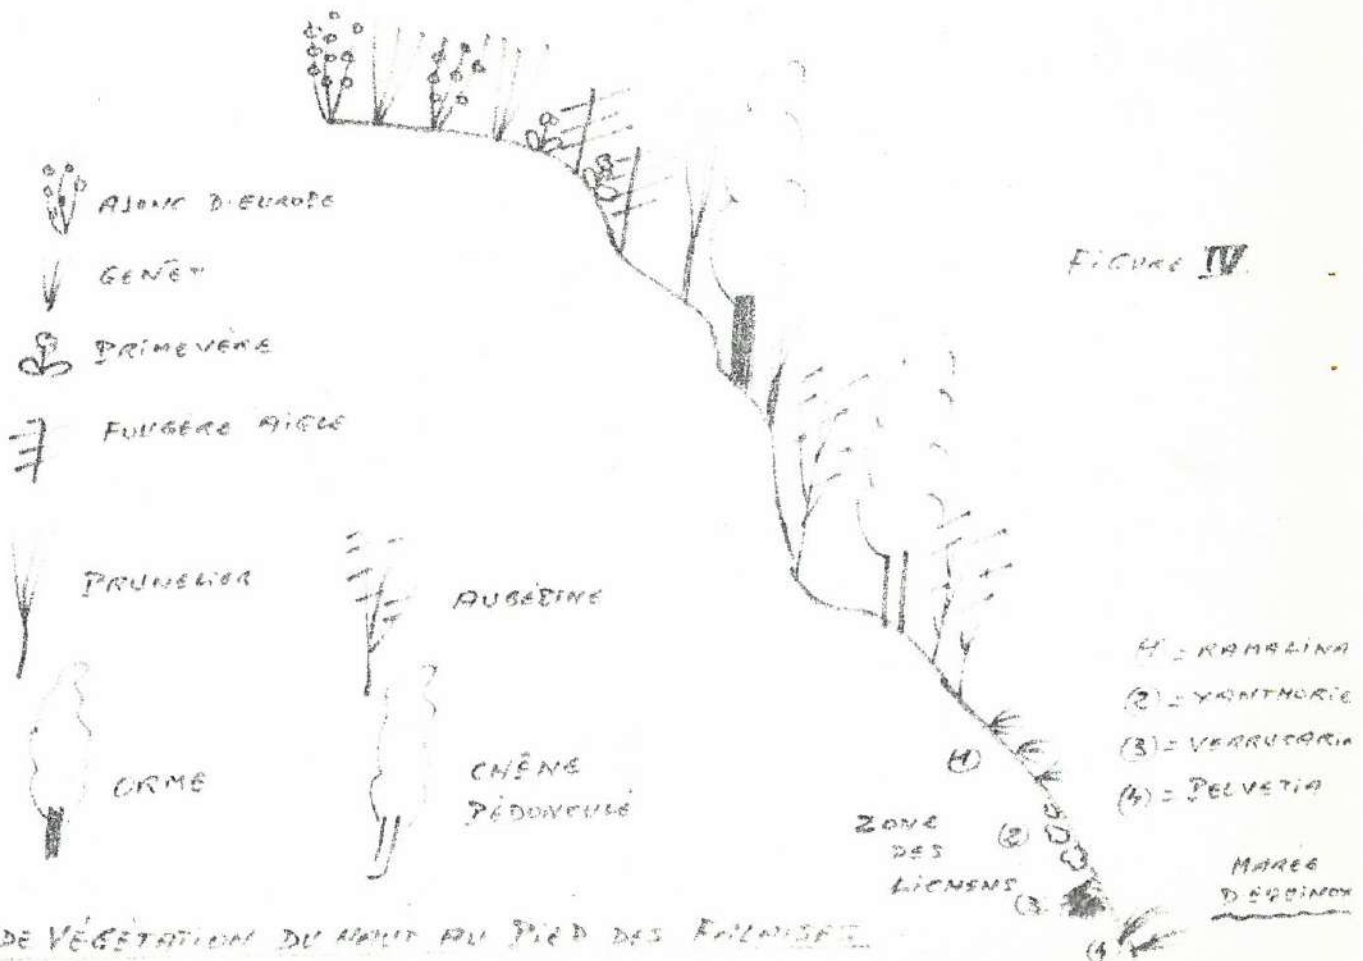 AJONC D'EUROPE
GENÊT
PRIMEVÈRE
FOUGÈRE AIGLE
PRUNELIER
AUBÉPINE
ORME
CHÊNE
PÉDONCULÉ
FIGURE IV
(1) = RAMALINA
(2) = XANTHORIE
(3) = VERRUCARIA
(4) = PELVETIA
(1)
ZONE
DES
LICHENS
(2)
(3)
(4)
MARÉE
D'ÉQUINOX
DE VÉGÉTATION DU HAUT AU PIED DES FALAISES